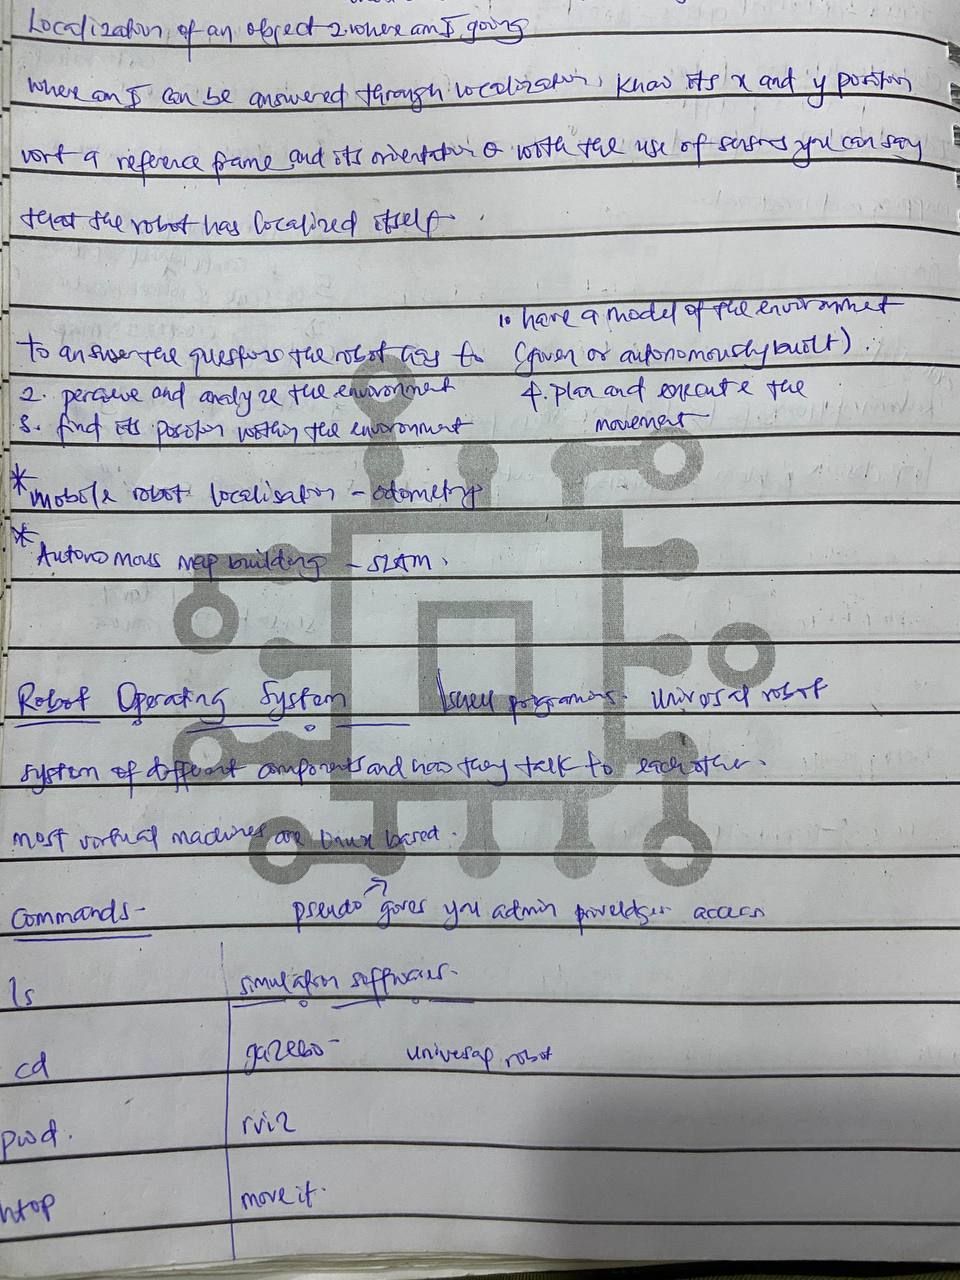 Localization of an object 2. where am I going
where am I can be answered through localization, know its x and y position
wrt a reference frame and its orientation θ with the use of sensors you can say
that the robot has localized itself.
1. have a model of the environment
to answer the questions the robot has to (given or autonomously built).
2. perceive and analyze the environment 4. plan and execute the
3. find its position within the environment movement
* mobile robot localisation - odometry
* Autonomous map building - SLAM.
Robot Operating System shell programming. universal robot
system of different components and how they talk to each other.
most virtual machines are linux based.
Commands- pseudo gives you admin access
ls simulation softwares.
cd gazebo- universal robot
pwd. rviz
htop moveit.